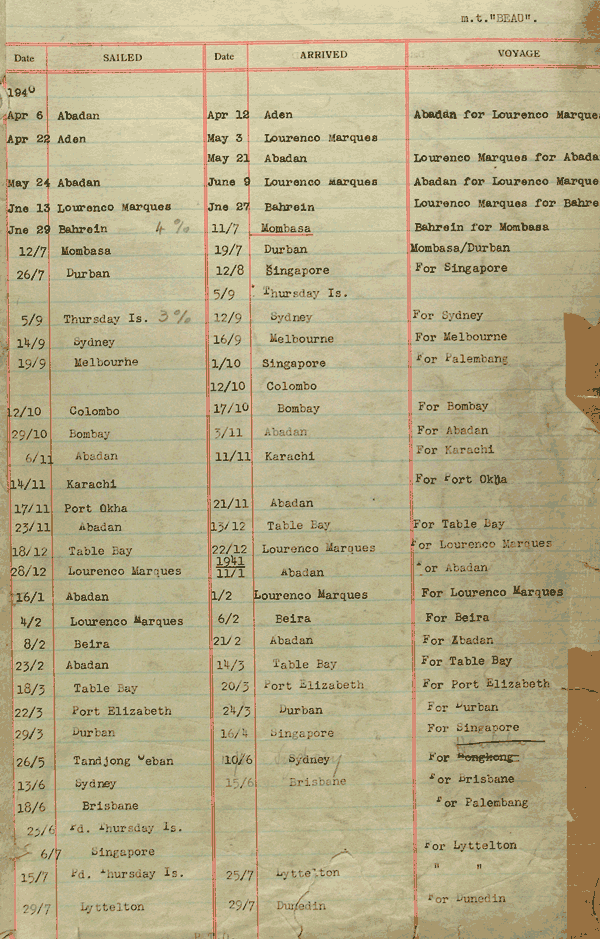 m.t."BEAU".
Date SAILED Date ARRIVED VOYAGE
1940
Apr 6 Abadan Apr 12 Aden Abadan for Lourenco Marques
Apr 22 Aden May 3 Lourenco Marques
May 21 Abadan Lourenco Marques for Abada
May 24 Abadan June 9 Lourenco Marques Abadan for Lourenco Marque
Jne 13 Lourenco Marques Jne 27 Bahrein Lourenco Marques for Bahre
Jne 29 Bahrein 4% 11/7 Mombasa Bahrein for Mombasa
12/7 Mombasa 19/7 Durban Mombasa/Durban
26/7 Durban 12/8 Singapore For Singapore
5/9 Thursday Is.
5/9 Thursday Is. 3% 12/9 Sydney For Sydney
14/9 Sydney 16/9 Melbourne For Melbourne
19/9 Melbourne 1/10 Singapore For Palembang
12/10 Colombo
12/10 Colombo 17/10 Bombay For Bombay
29/10 Bombay 3/11 Abadan For Abadan
6/11 Abadan 11/11 Karachi For Karachi
14/11 Karachi For Port Okha
17/11 Port Okha 21/11 Abadan
23/11 Abadan 13/12 Table Bay For Table Bay
18/12 Table Bay 22/12 Lourenco Marques For Lourenco Marques
1941
28/12 Lourenco Marques 11/1 Abadan For Abadan
16/1 Abadan 1/2 Lourenco Marques For Lourenco Marques
4/2 Lourenco Marques 6/2 Beira For Beira
8/2 Beira 21/2 Abadan For Abadan
23/2 Abadan 14/3 Table Bay For Table Bay
18/3 Table Bay 20/3 Port Elizabeth For Port Elizabeth
22/3 Port Elizabeth 24/3 Durban For Durban
29/3 Durban 16/4 Singapore For Singapore
26/5 Tandjong Oeban 10/6 Sydney For Hongkong
13/6 Sydney 15/6 Brisbane For Brisbane
18/6 Brisbane For Palembang
25/6 Pd. Thursday Is.
6/7 Singapore For Lyttelton
15/7 Pd. Thursday Is. 25/7 Lyttelton " "
29/7 Lyttelton 29/7 Dunedin For Dunedin